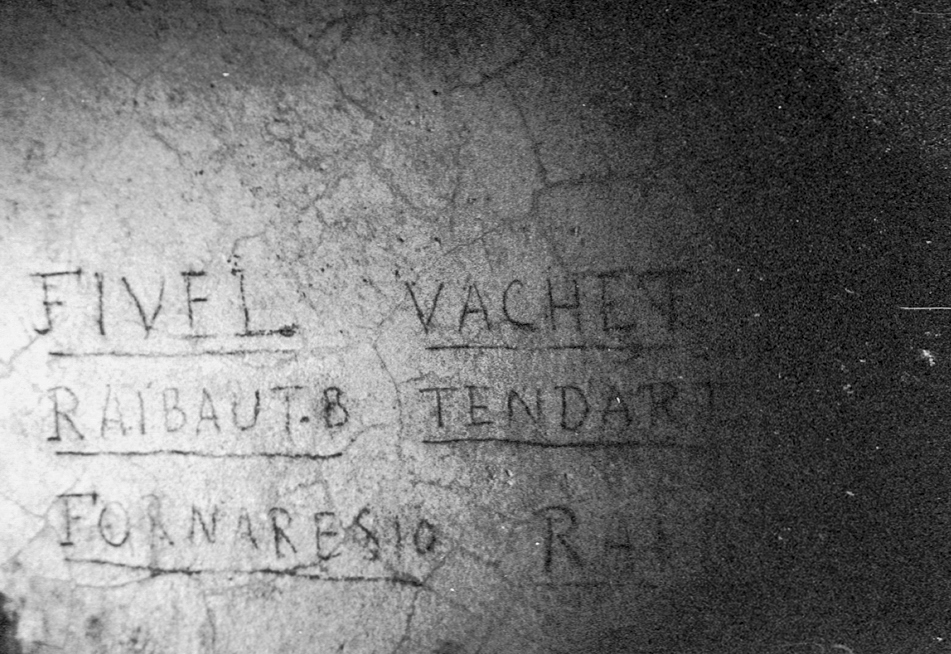 FIVEL VACHET
RAIBAUT.B TENDART
FORNARESIO